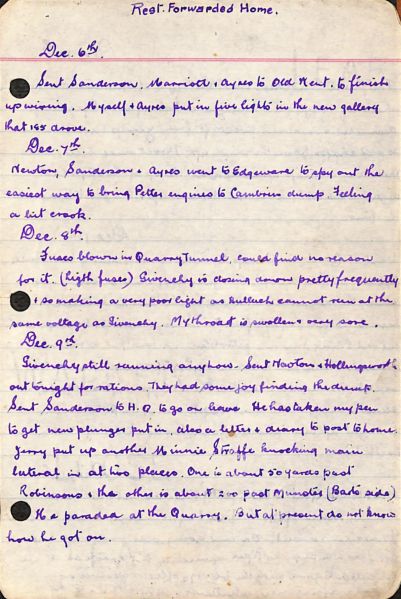 Rest. Forwarded Home.
Dec. 6th.
Sent Sanderson, Marriott + Ayres to Old Kent, to finish
up wiring. Myself + Ayres put in five lights in the new gallery
that 185 drove.
Dec. 7th.
Newton, Sanderson + Ayres went to Edgeware to spy out the
easiest way to bring Petter engines to Cambrin dump. Feeling
a bit crook.
Dec. 8th.
Fuses blown in Quarry Tunnel, could find no reason
for it. (ligth fuses) Givenchy is closing down pretty frequently
+ so making a very poor light as Hulluch cannot run at the
same voltage as Givenchy. My throat is swollen + very sore.
Dec. 9th.
Givenchy still running anyhow. Sent + Hollingsworth
out tonight for rations. They had some joy finding the dump.
Sent Sanderson to H.Q. to go on leave. He has taken my pen
to get new plunger put in, also a letter + diary to post to home.
Jerry put up another Minnie Straffe knocking main
lateral in at two places. One is about 50 yards past
Robinsons + the other is about 200 past (Barts side)
He paraded at the Quarry. But at present do not know
how he got on.